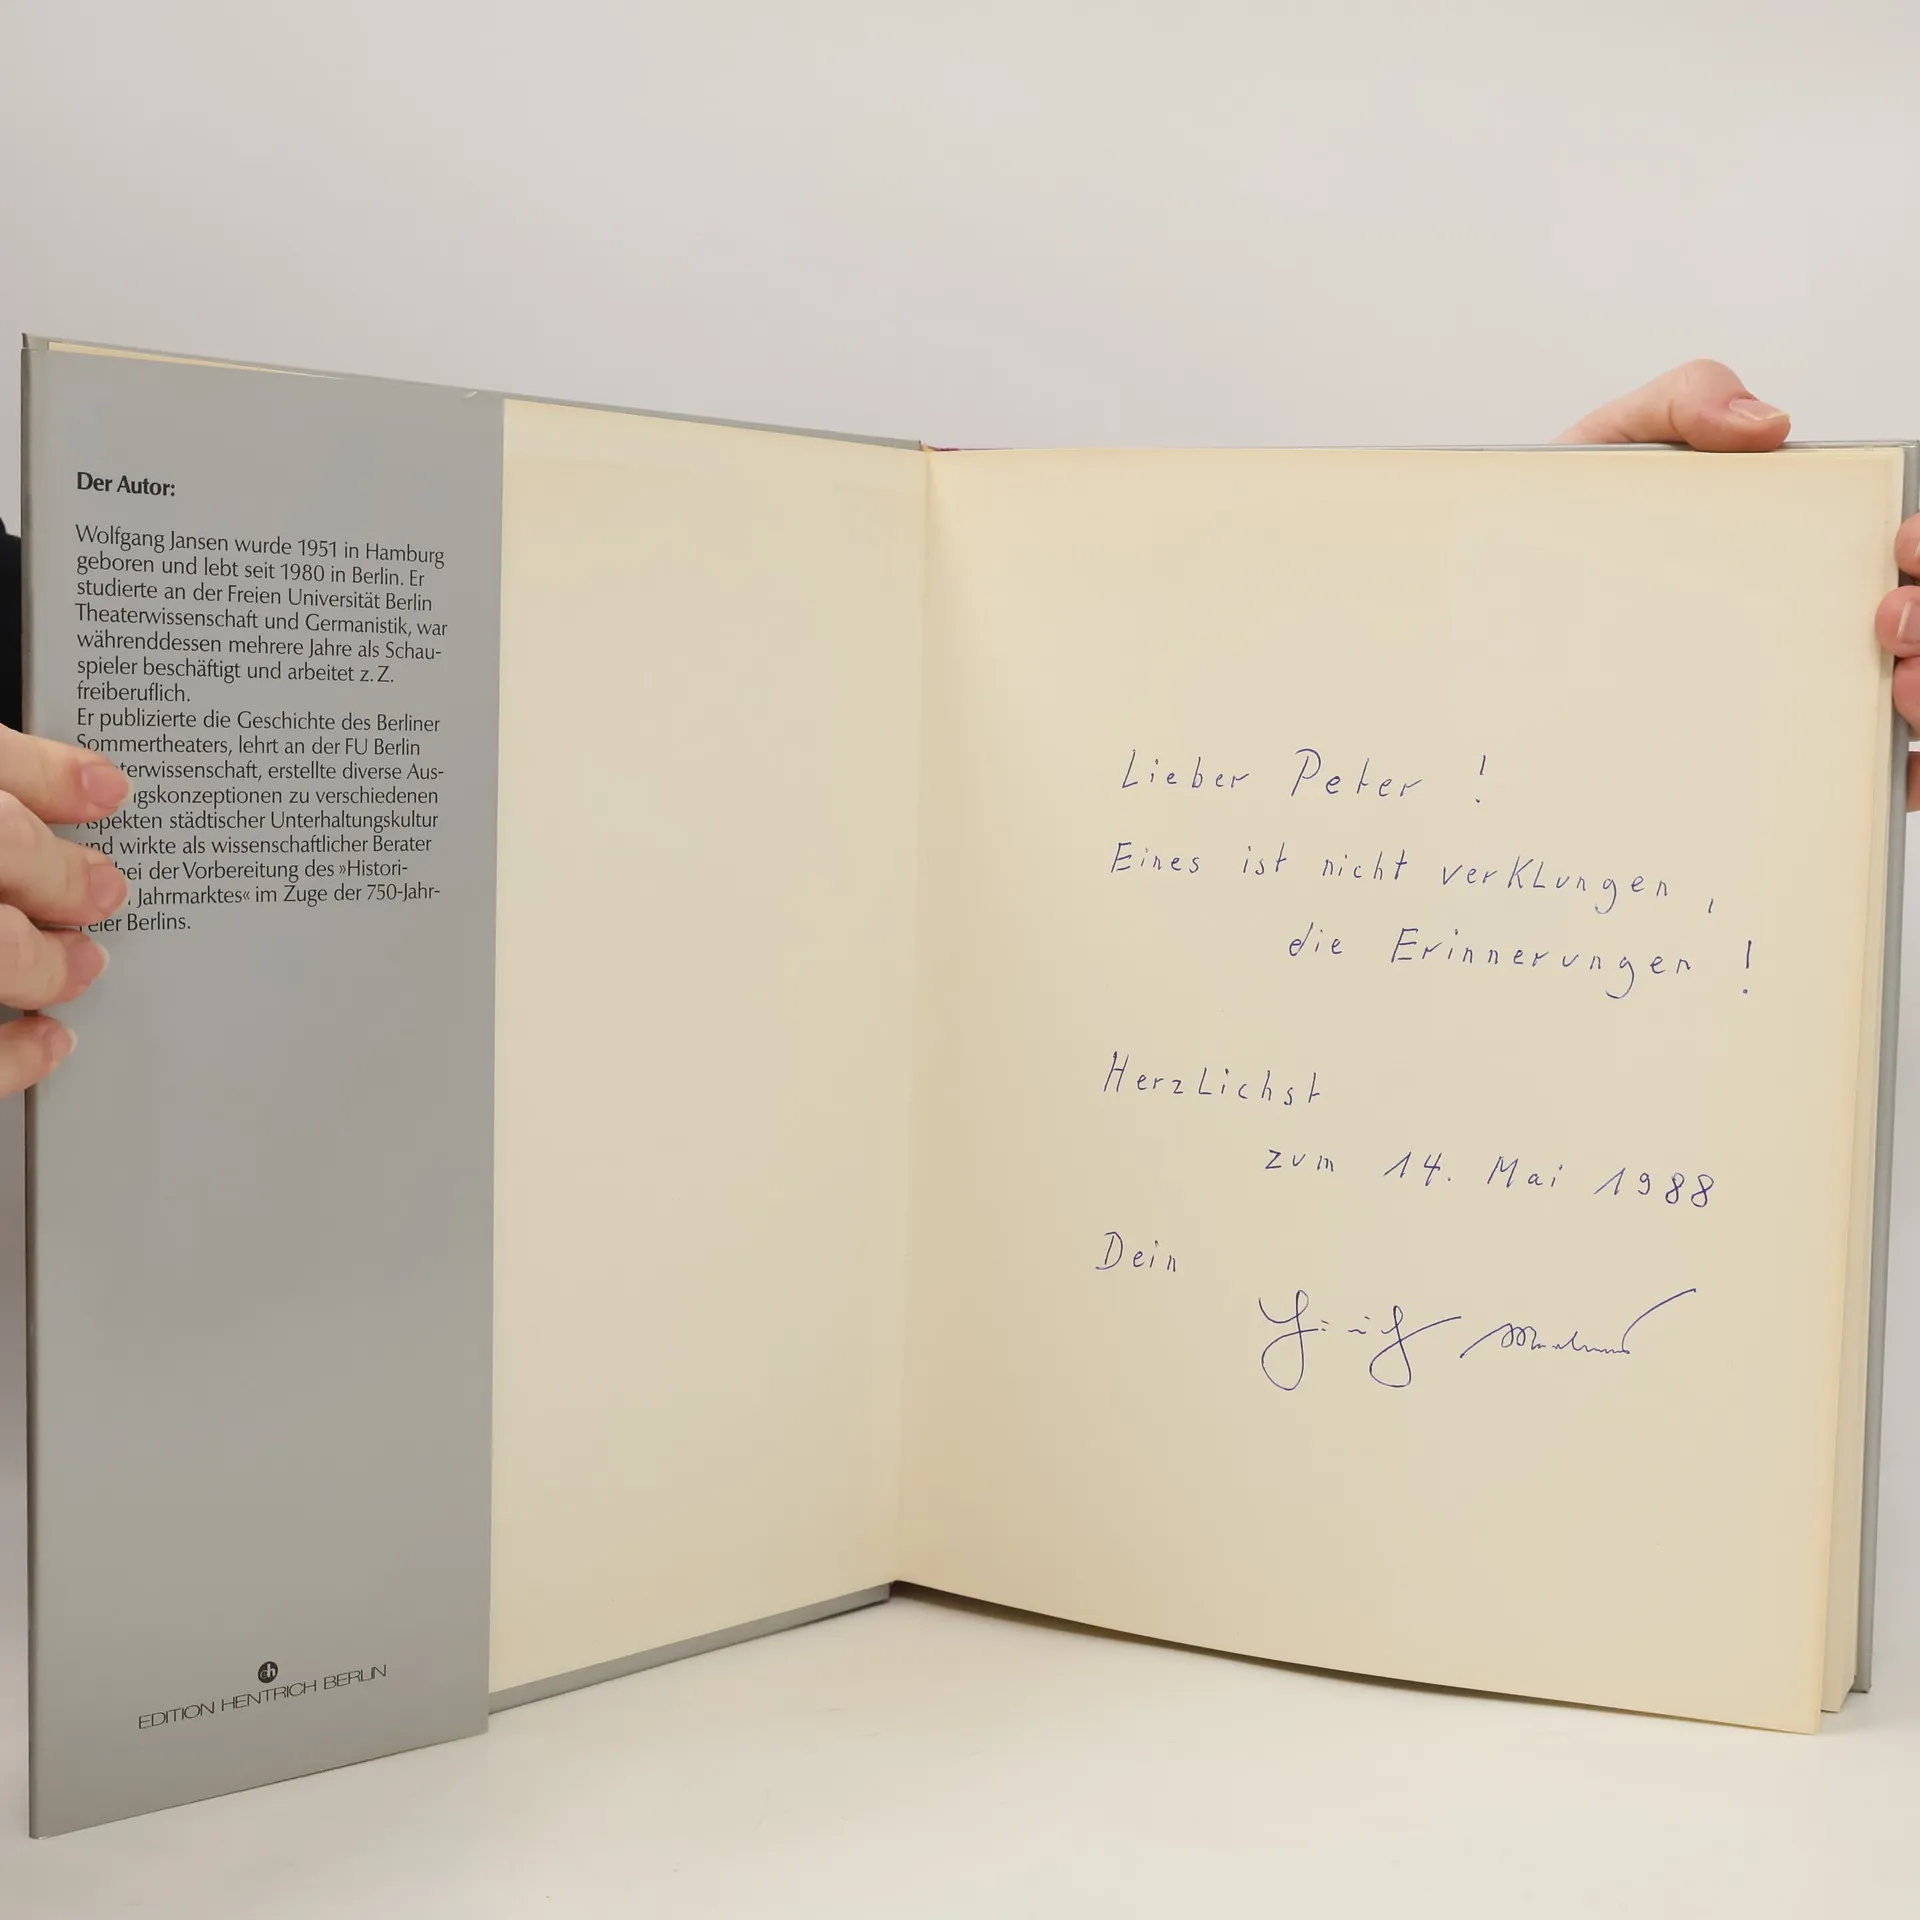 Der Autor:
Wolfgang Jansen wurde 1951 in Hamburg
geboren und lebt seit 1980 in Berlin. Er
studierte an der Freien Universität Berlin
Theaterwissenschaft und Germanistik, war
währenddessen mehrere Jahre als Schau-
spieler beschäftigt und arbeitet z. Z.
freiberuflich.
Er publizierte die Geschichte des Berliner
Sommertheaters, lehrt an der FU Berlin
terwissenschaft, erstellte diverse Aus-
gskonzeptionen zu verschiedenen
Aspekten städtischer Unterhaltungskultur
und wirkte als wissenschaftlicher Berater
bei der Vorbereitung des »Histori-
Jahrmarktes« im Zuge der 750-Jahr-
feier Berlins.
ch
EDITION HENTRICH BERLIN
Lieber Peter !
Eines ist nicht verKLungen ,
die Erinnerungen !
HerzLichst
zum 14. Mai 1988
Dein